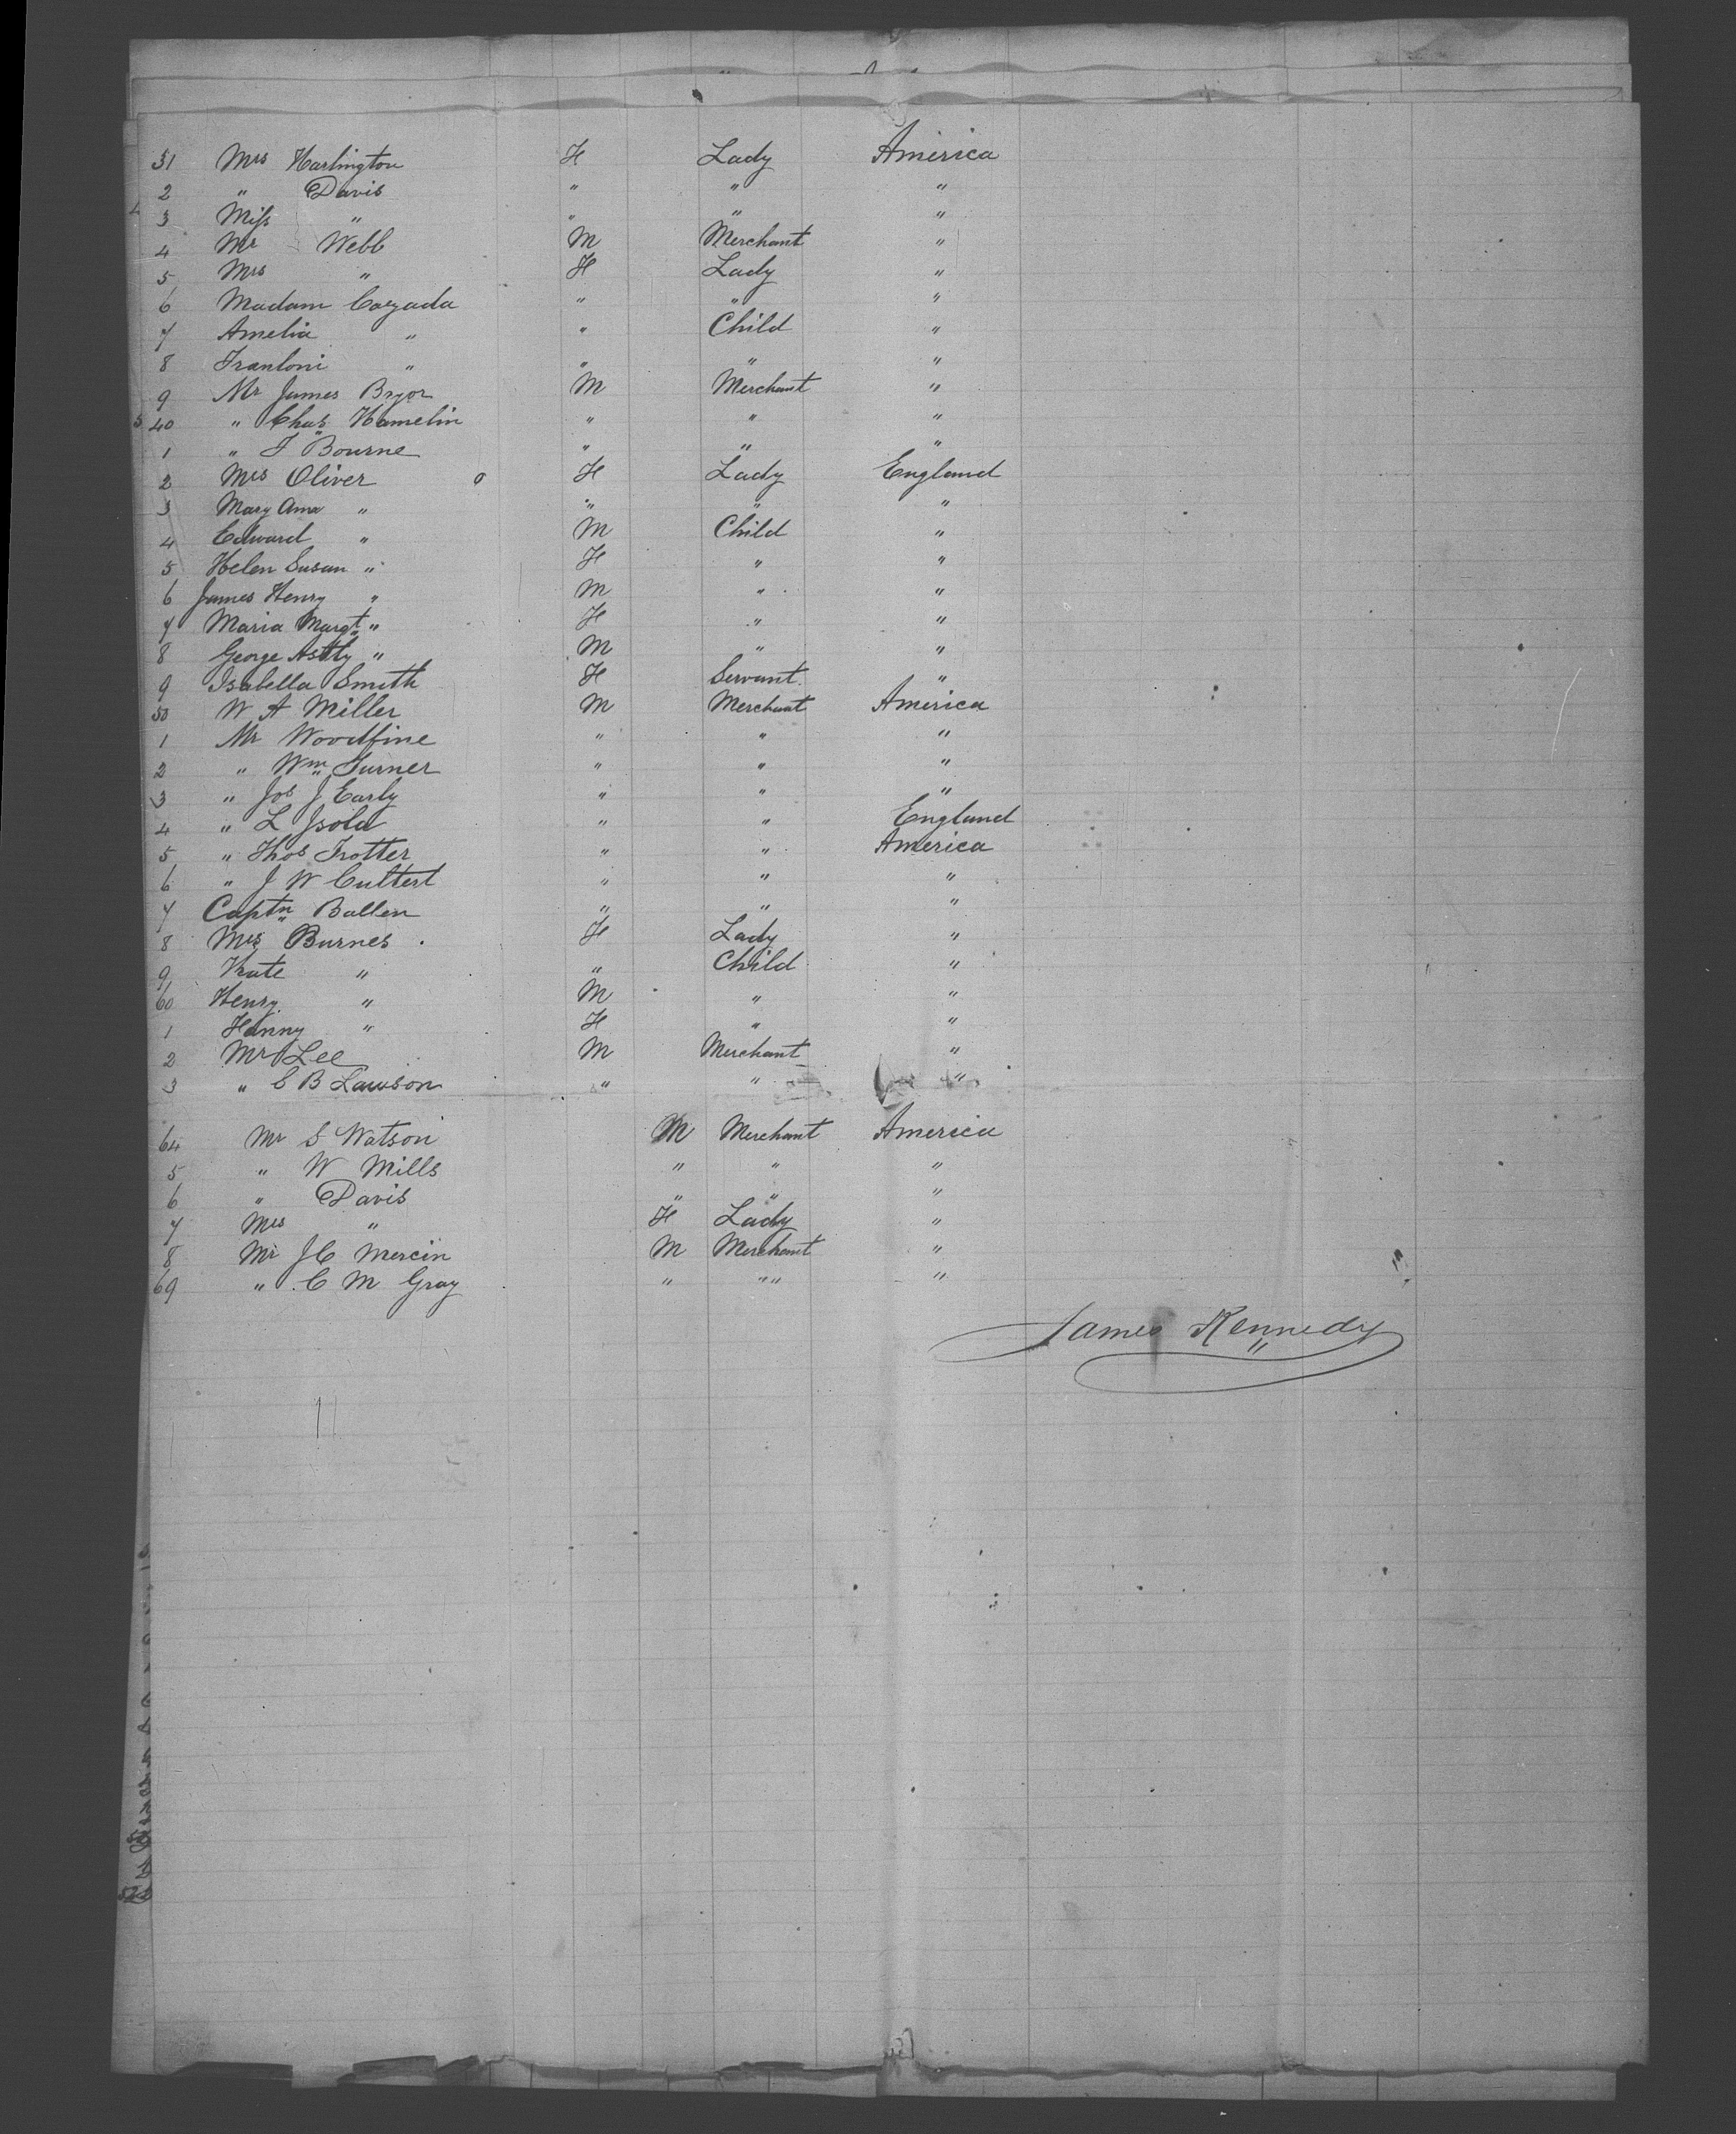 31 Mrs Harlington F Lady America
2 " Davis " " "
3 Miss " " " "
4 Mr Webb M Merchant "
5 Mrs " F Lady "
6 Madam Cazada " " "
7 Amelia " " Child "
8 " " " "
9 Mr James Bryor M Merchant "
40 " Chas Hamelin " " "
1 " J Bourne " " "
2 Mrs Oliver F Lady England
3 Mary Ann " " " "
4 Edward " M Child "
5 Helen Susan " F " "
6 James Henry " M " "
7 Maria Margt " F " "
8 George Astly " M " "
9 Isabella Smith F Servant "
50 W A Miller M Merchant America
1 Mr Woodfine " " "
2 " Wm Turner " " "
3 " Jos J Early " " "
4 " L Isola " " England
5 " Thos Trotter " " America
6 " J W Cuttert " " "
7 Captn Ballen " " "
8 Mrs Burnes F Lady "
9 Kate " " Child "
60 Henry " M " "
1 Fanny " F " "
2 Mr Lee M Merchant "
3 " C B Lawson " " "
64 Mr S Watson M Merchant America
5 " W Mills " " "
6 " Davis " " "
7 Mrs " F Lady "
8 Mr J C Mercin M Merchant "
69 " C M Gray " "" "
James Kennedy